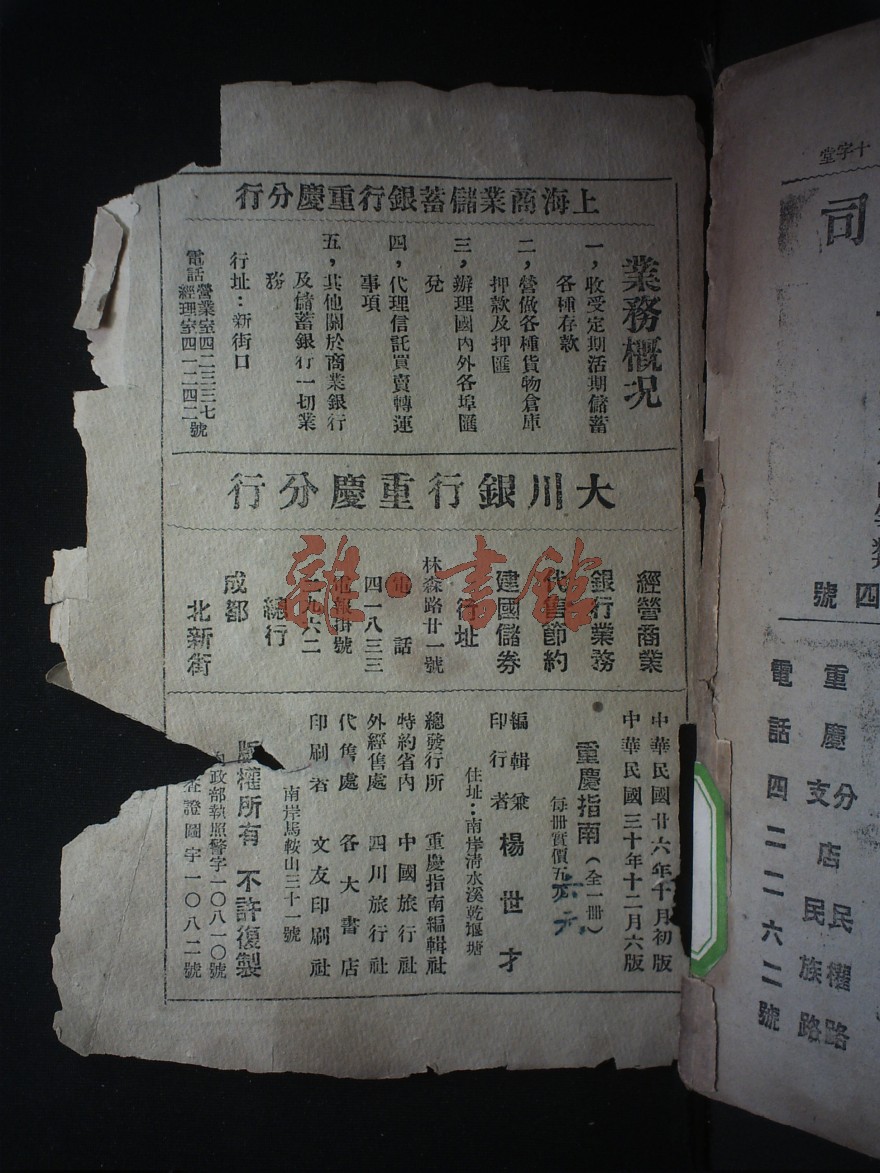 上海商業儲蓄銀行重慶分行
業務概況
一，收受定期活期儲蓄
各種存款
二，營做各種貨物倉庫
押款及押匯
三，辦理國內外各埠匯
兌
四，代理信託買賣轉運
事項
五，其他關於商業銀行
及儲蓄銀行一切業
務
行址：新街口
電話營業室四二三三七
經理室四一二四二號
大川銀行重慶分行
經營商業
銀行業務
代售節約
建國儲券
行址
林森路廿一號
電話
四一八三三
電報掛號
九六二
總行
成都
北新街
中華民國廿六年十月初版
中華民國三十年十二月六版
重慶指南（全一冊）
每冊實價五
六元
編輯兼
印行者
楊世才
住址：南岸清水溪乾堰塘
總發行所 重慶指南編輯社
特約省內 中國旅行社
外經售處 四川旅行社
代售處 各大書店
印刷者 文友印刷社
南岸馬鞍山三十一號
版權所有 不許復製
政部執照警字一〇八一〇號
證圖字一〇八二號
雜·書館
十字堂
司
四號
分店民權路
重慶支店民族路
電話四二二六二號